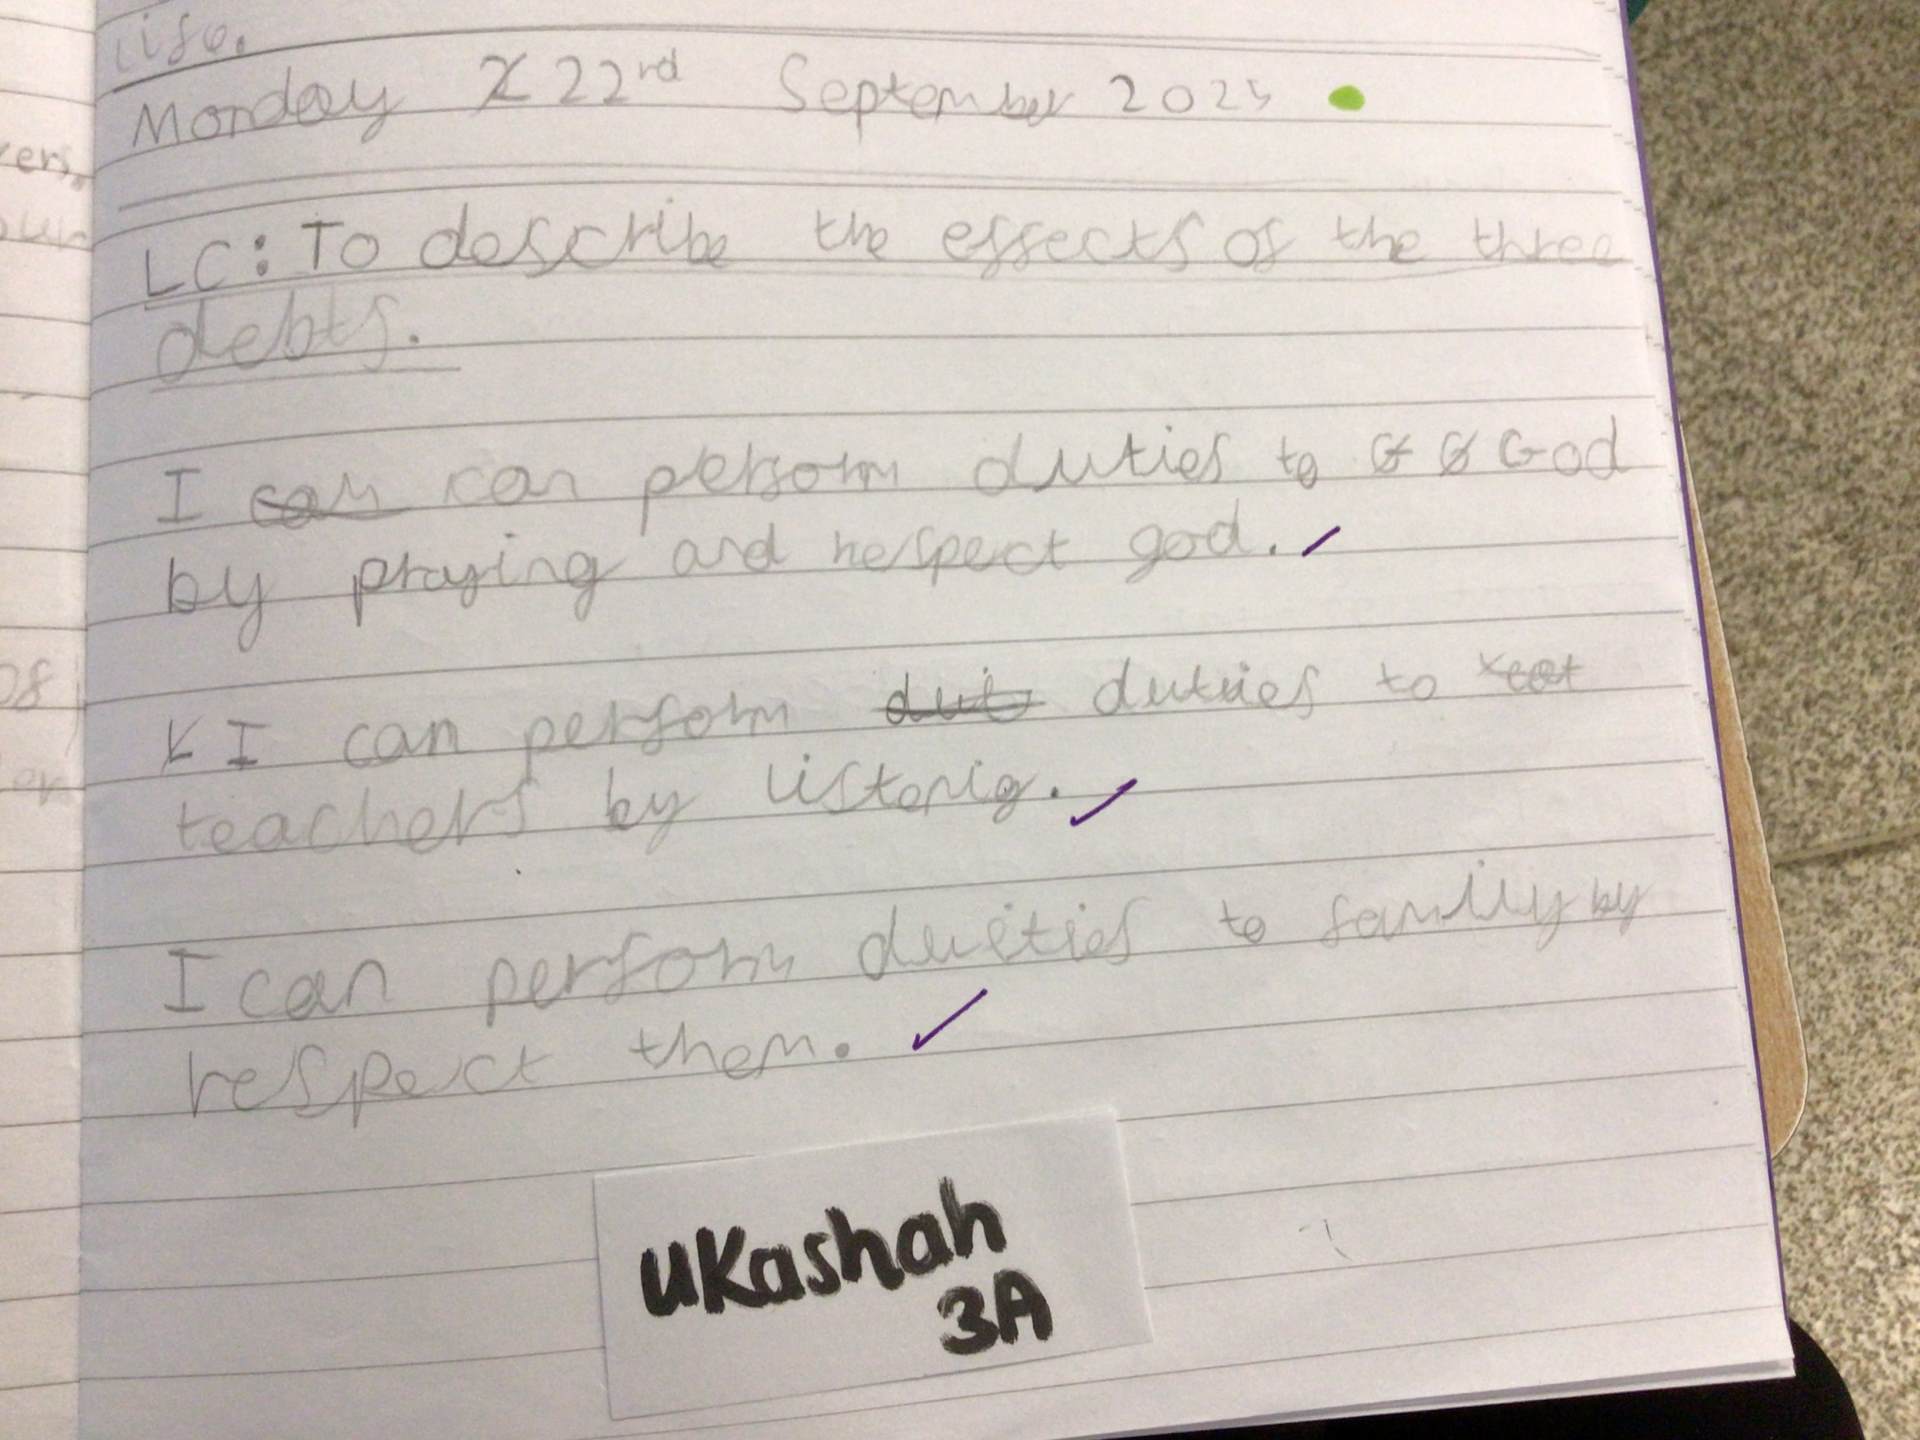 life.
Monday 22rd September 2025
LC: To describe the effects of the three
debts.
I can can perform duties to God
by praying and respect god.
I can perform dut duties to
teachers by listenig.
I can perform dueties to family by
respect them.
ers,
of
er
UKashah
3A